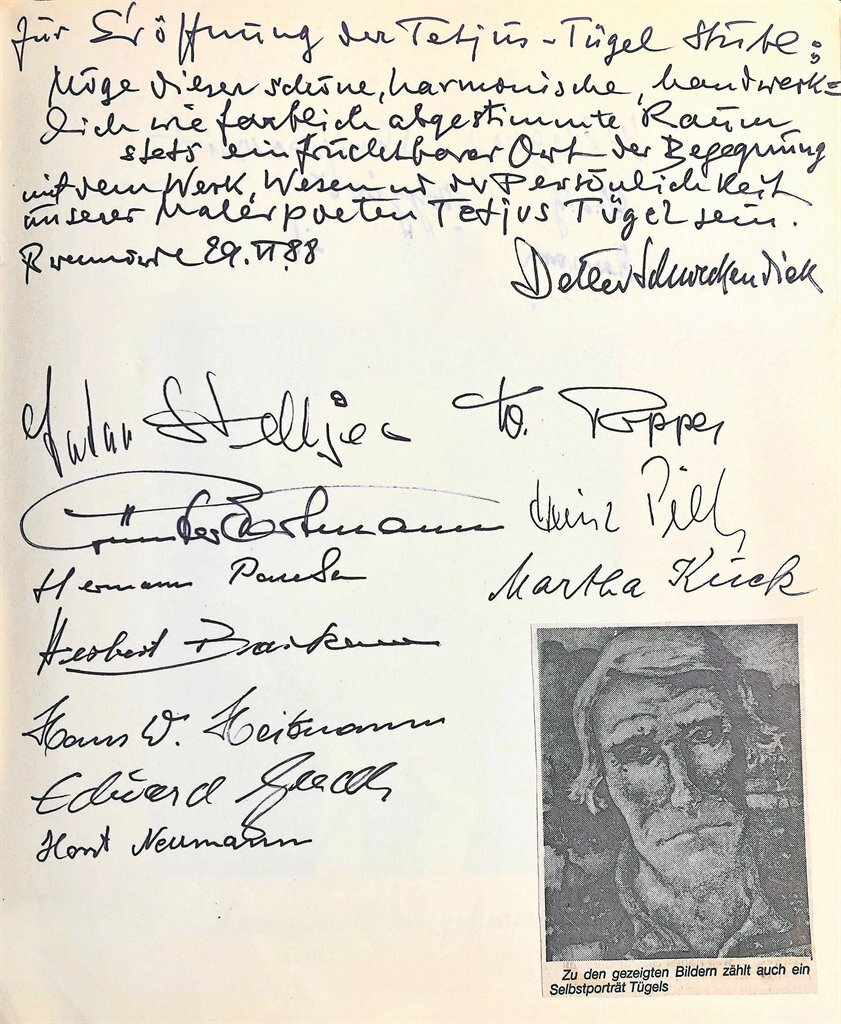 Zur Eröffnung der Tetjus-Tügel Stube:
Möge dieser schöne, harmonische, handwerk=
lich wie farblich abgestimmte Raum
stets ein fruchtbarer Ort der Begegnung
mit dem Werk, Wesen und der Persönlichkeit
unseres Malerpoeten Tetjus Tügel sein.
29.VI.88
Detlev Schweckendiek
Stelljes
W. Popper
Günter
Heinz
Hermann
Martha Kück
Herbert
Hans W. Heitmann
Eduard
Horst Neumann
Zu den gezeigten Bildern zählt auch ein
Selbstporträt Tügels